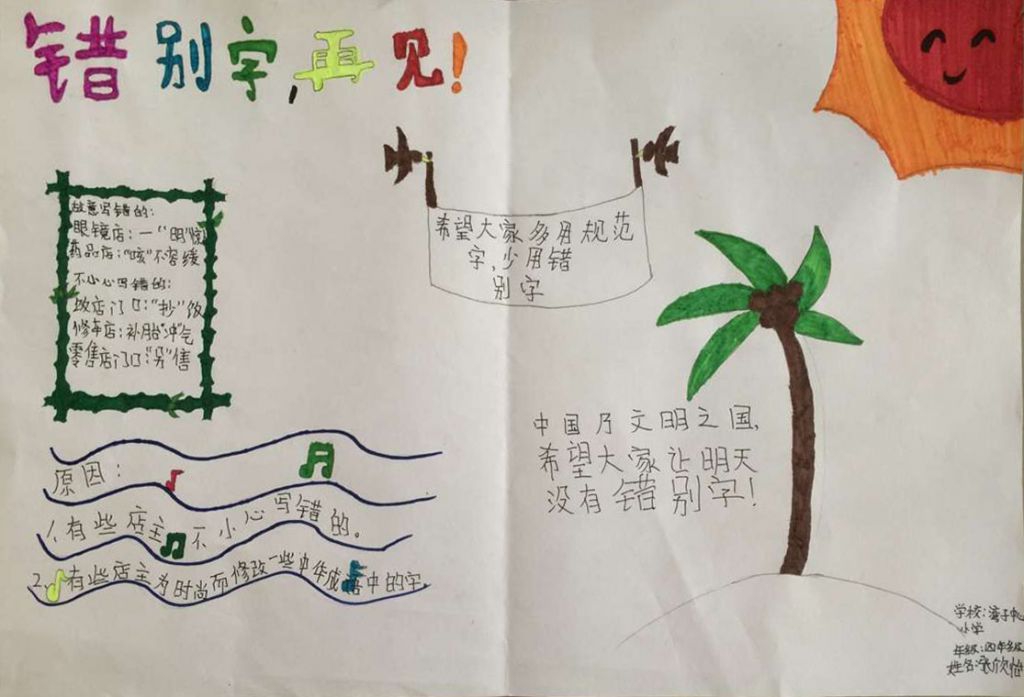 错别字,再见!
故意写错的:
眼镜店:一“明”惊
药品店:“咳”不容缓
不小心写错的:
饭店门口:“抄”饭
修车店:补胎“冲”气
零售店门口:“另”售
希望大家多用规范
字,少用错
别字
原因:
1、有些店主不小心写错的。
2、有些店主为时尚而修改一些中华成语中的字。
中国乃文明之国,
希望大家让明天
没有错别字!
学校:湾子中心
小学
年级:四年级
姓名:张欣怡